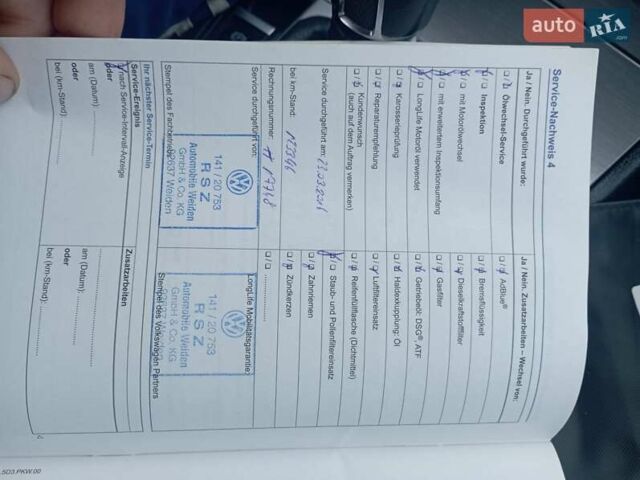 Service-Nachweis 4
Ja / Nein. Durchgeführt wurde:
Ölwechsel-Service
Inspektion
mit Motorölwechsel
mit erweitertem Inspektionsumfang
LongLife Motoröl verwendet
Karosserieprüfung
Reparaturempfehlung
Kundenwunsch
(auch auf dem Auftrag vermerken)
Service durchgeführt am:
bei km-Stand:
Rechnungsnummer:
Service durchgeführt von:
141 / 20 753
RSZ
Automobile Weiden
GmbH & Co. KG
92637 Weiden
Stempel des Fachbetriebs
Ihr nächster Service-Termin
Service-Ereignis
nach Service-Intervall-Anzeige
oder
am (Datum):
oder
bei (km-Stand):
Ja / Nein. Zusatzarbeiten – Wechsel von:
AdBlue®
Bremsflüssigkeit
Dieselkraftstofffilter
Gasfilter
Getriebeöl: DSG®, ATF
Haldexkupplung, Öl
Luftfiltereinsatz
Reifenfüllflasche (Dichtmittel)
Staub- und Pollenfiltereinsatz
Zahnriemen
Zündkerzen
LongLife Mobilitätsgarantie:
141 / 20 753
RSZ
Automobile Weiden
GmbH & Co. KG
92637 Weiden
Stempel des Volkswagen Partners
Zusatzarbeiten
am (Datum):
oder
bei (km-Stand):
5D3.PKW.00
auto RIA.com